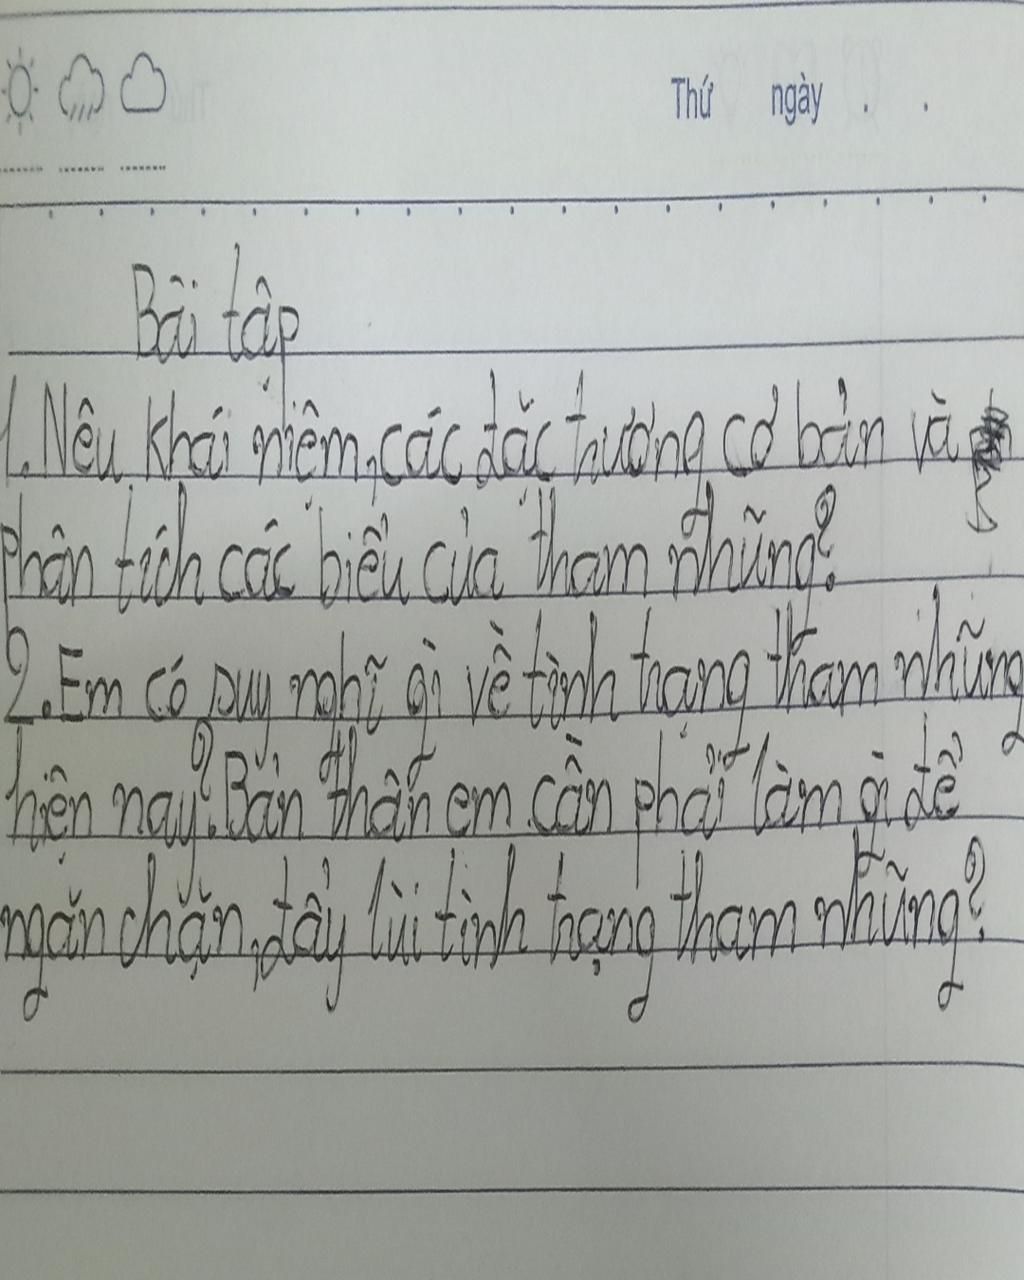 Thứ ngày . .
Bài tập
1. Nêu khái niệm, các đặc thương cơ bản và
phân tích các biểu của tham nhũng?
2. Em có suy nghĩ gì về tình trạng tham nhũng
hiện nay? Bản thân em cần phải làm gì để
ngăn chặn, đẩy lùi tình trạng tham nhũng?